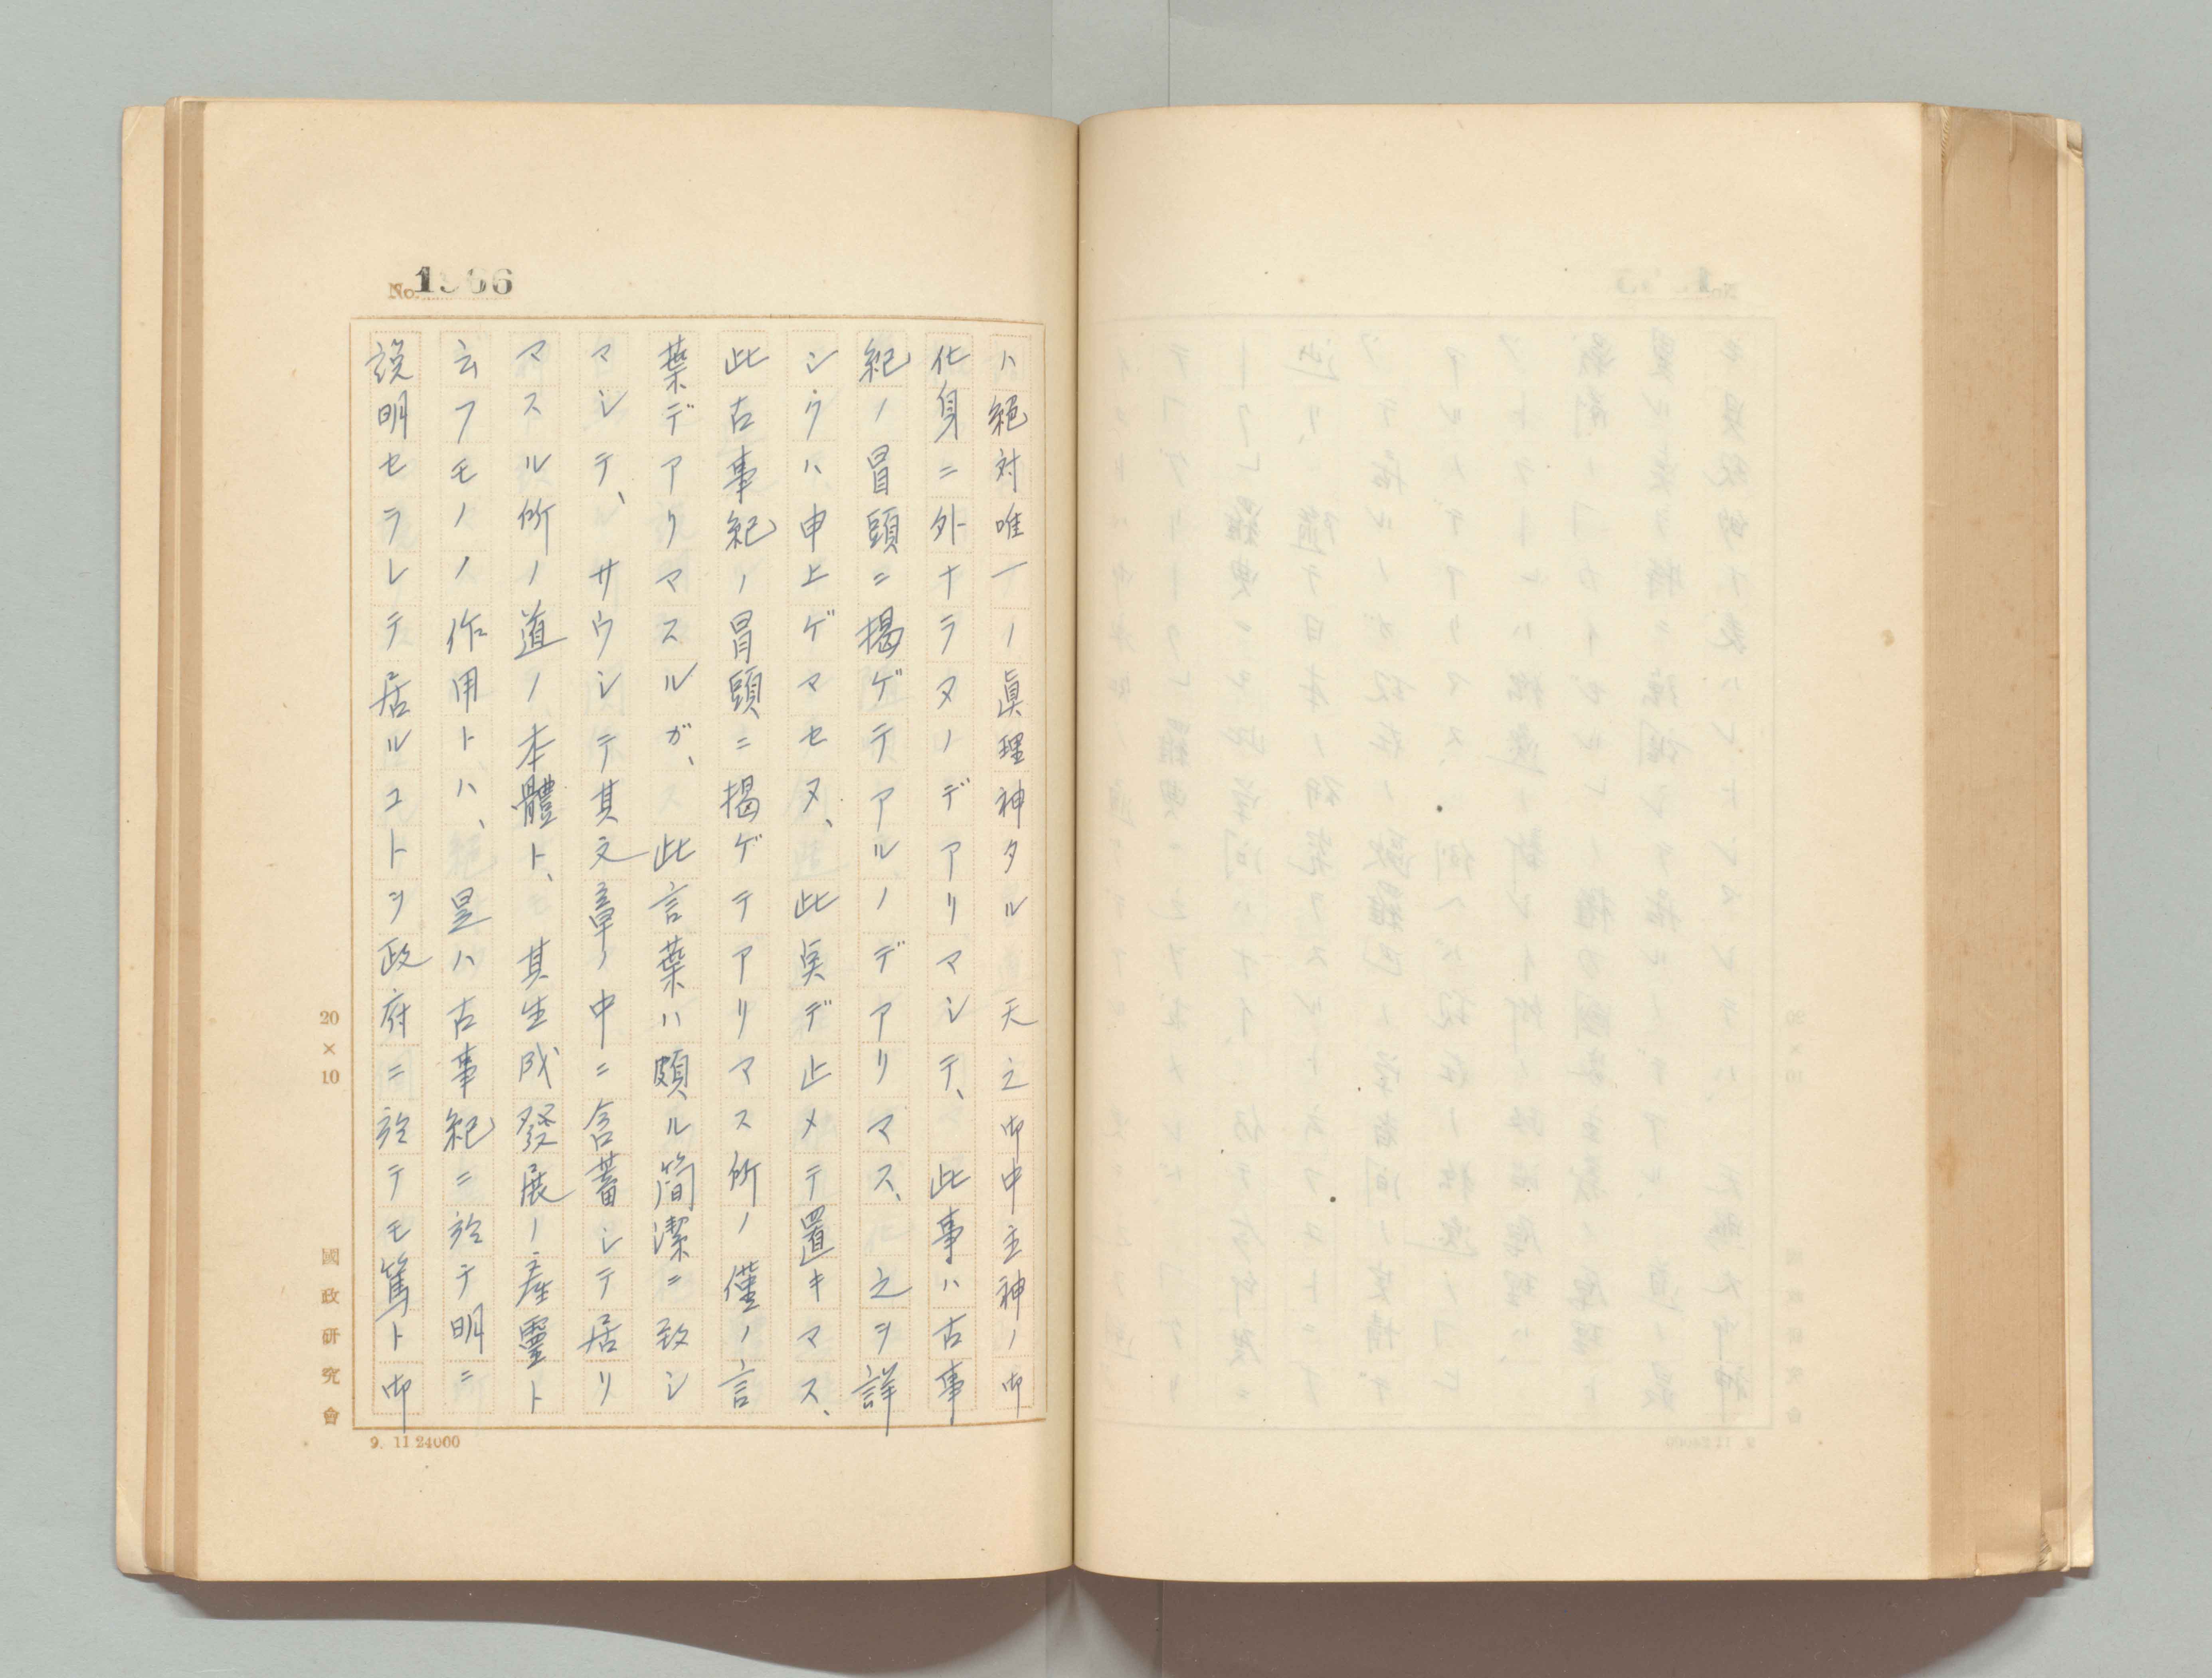 No. 1366
ハ絶対唯一ノ眞理神タル 天之御中主神ノ御
化身ニ外ナラヌノデアリマシテ、此事ハ古事
紀ノ冒頭ニ掲ゲテアルノデアリマス、之ヲ詳
シウハ申上ゲマセヌ、此点デ止メテ置キマス、
此古事紀ノ冒頭ニ掲ゲテアリマス所ノ僅ノ言
葉デアリマスルガ、此言葉ハ頗ル簡潔ニ致シ
マシテ、サウシテ其文章ノ中ニ含蓄シテ居リ
マスル所ノ道ノ本體ト、其生成發展ノ産靈ト
云フモノノ作用トハ、是ハ古事紀ニ於テ明ニ
説明セラレテ居ルコトヲ政府ニ於テモ篤ト御
20×10
國政研究會
9. 11 24000